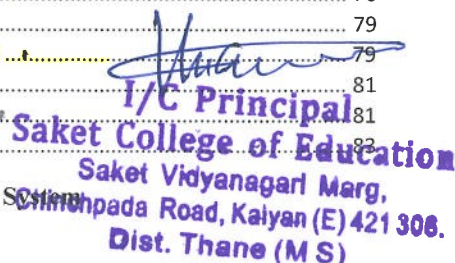 79
79
81
I/C Principal
81
Saket College of Education
83
Saket Vidyanagari Marg,
System
Chinchpada Road, Kalyan (E) 421 306.
Dist. Thane (M S)